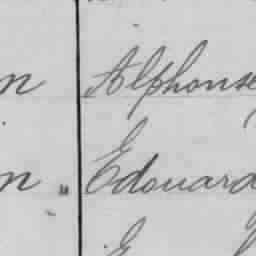 n Alphonse
n " Edouard